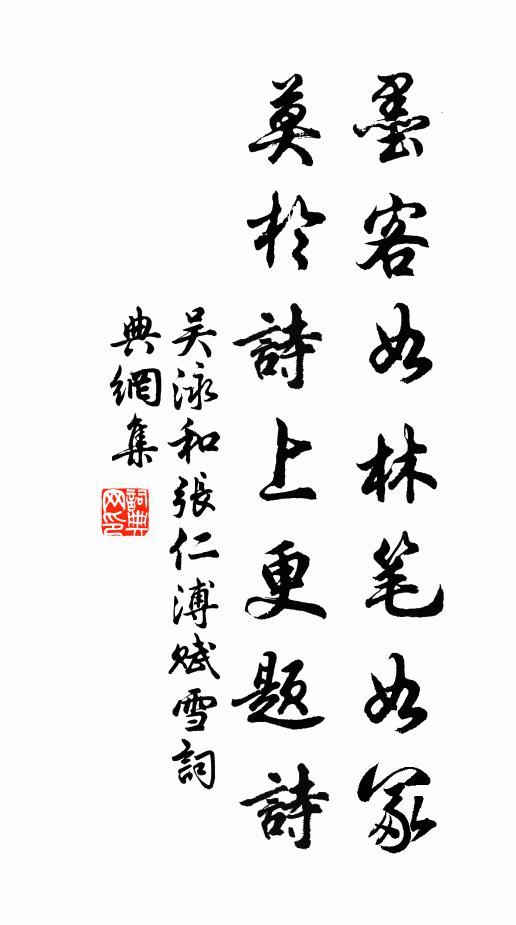 墨客如林笔如冢
莫於詩上更題詩
吴泳和張仁溥赋雪詞
典網集
詞典網印